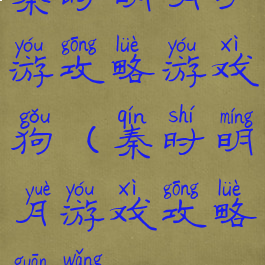 秦时明月
yóu gōng lüè yóu xì
游攻略游戏
gǒu qín shí míng
狗（秦时明
yuè yóu xì gōng lüè
月游戏攻略
guān wǎng